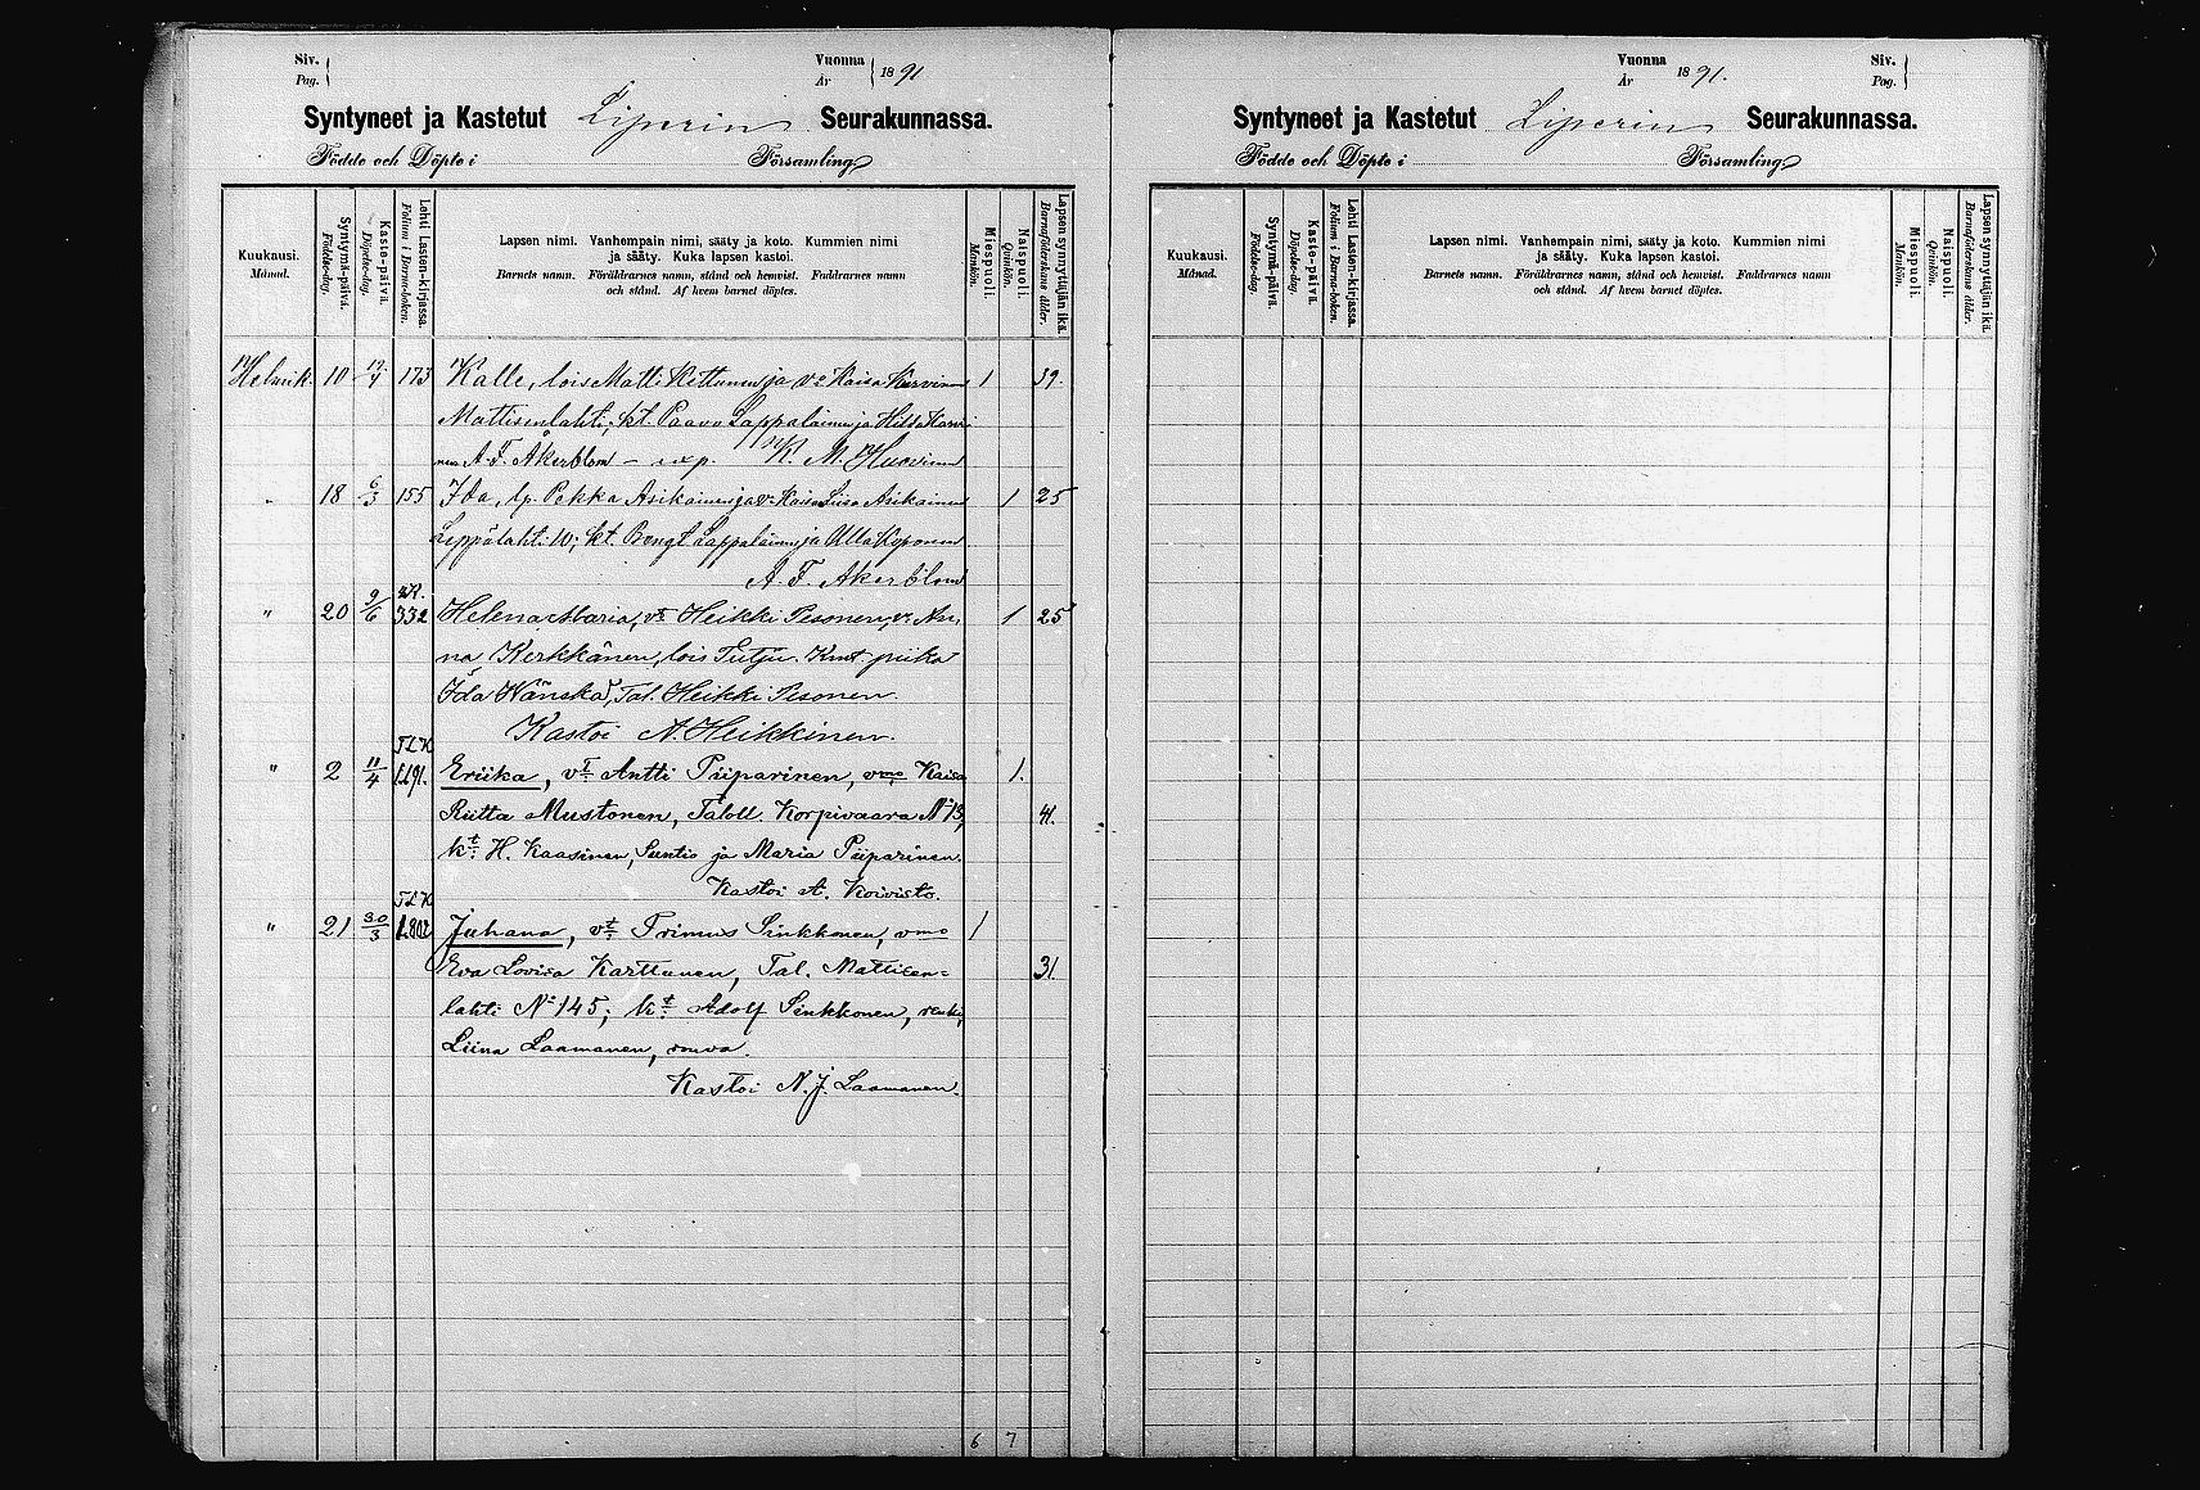 Siv.
Pag.
Vuonna
År
1891
Syntyneet ja Kastetut Liperin Seurakunnassa.
Födde och Döpte i Församling
Kuukausi.
Månad.
Syntymä-päivä.
Födelse-dag.
Kaste-päivä.
Döpelse-dag.
Lehti Lasten-kirjassa.
Folium i Barna-boken.
Lapsen nimi. Vanhempain nimi, sääty ja koto. Kummien nimi
ja sääty. Kuka lapsen kastoi.
Barnets namn. Föräldrarnes namn, stånd och hemvist. Faddrarnes namn
och stånd. Af hvem barnet döptes.
Miespuoli.
Mankön.
Naispuoli.
Qvinkön.
Lapsen synnyttäjän ikä.
Barnaföderskans ålder.
Helmik. 10 173 Kalle, lois Matti Kettunen ja vo Kaisa 1 39.
Mattisenlahti; kt. Paavo Lappalainen ja Hilda Karvi
nen A. F. Åkerblom – K. M.
" 18 6/3 155 Ida, lp. Pekka Asikainen ja vo Kaisa Liisa Asikainen 1 25
Leppälahti 10; kt. Bengt Lappalainen ja Ulla Koponen
A. F. Åkerblom
" 20 9/6 332 Helena Maria, vt Heikki Pesonen, vo An,
1 25
na Kerkkänen, lois Tutju. Kmt. piika
Ida Hänska, Tal. Heikki Pesonen.
Kastoi A. Heikkinen.
TLK
" 2 11/4 1191. Eriika, vt Antti Piiparinen, vmo Kaisa 1.
Riitta Mustonen, Taloll. Korpivaara No 13, 41.
kt. H. Kaasinen, Suntio ja Maria Piiparinen.
Kastoi A. Koivisto.
TLK
" 21 30/3 1.802 Juhana, vt. Primus Sinkkonen, vmo 1
Eva Lovisa Karttunen, Tal. Mattisen= 31.
lahti No 145; kt. Adolf Sinkkonen, renki,
Liina Laamanen, rouva.
Kastoi N. J. Laamanen.
6 7
Vuonna
År
1891.
Siv.
Pag.
Syntyneet ja Kastetut Liperin Seurakunnassa.
Födde och Döpte i Församling
Kuukausi.
Månad.
Syntymä-päivä.
Födelse-dag.
Kaste-päivä.
Döpelse-dag.
Lehti Lasten-kirjassa.
Folium i Barna-boken.
Lapsen nimi. Vanhempain nimi, sääty ja koto. Kummien nimi
ja sääty. Kuka lapsen kastoi.
Barnets namn. Föräldrarnes namn, stånd och hemvist. Faddrarnes namn
och stånd. Af hvem barnet döptes.
Miespuoli.
Mankön.
Naispuoli.
Qvinkön.
Lapsen synnyttäjän ikä.
Barnaföderskans ålder.